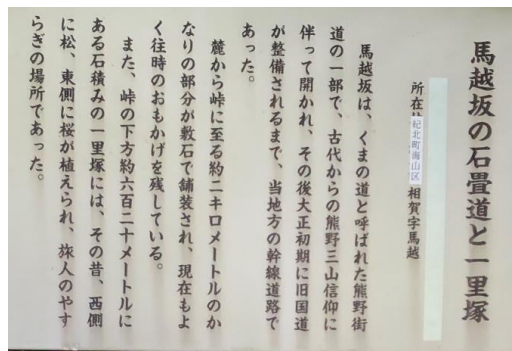 馬越坂の石畳道と一里塚
所在地 紀北町海山区 相賀字馬越
馬越坂は、くまの道と呼ばれた熊野街
道の一部で、古代からの熊野三山信仰に
伴って開かれ、その後大正初期に旧国道
が整備されるまで、当地方の幹線道路で
あった。
麓から峠に至る約二キロメートルのか
なりの部分が敷石で舗装され、現在もよ
く往時のおもかげを残している。
また、峠の下方約六百二十メートルに
ある石積みの一里塚には、その昔、西側
に松、東側に桜が植えられ、旅人のやす
らぎの場所であった。